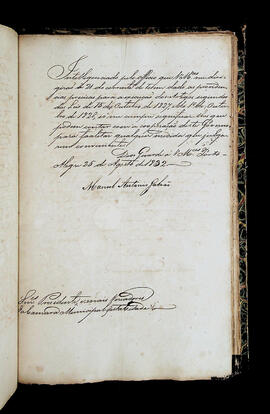 Intelligenciado pelo officio que V.Mces me diri-
girão de 21 do corrente de terem dado as providen-
cias precisas para a execução do artigo segundo
da Lei de 15 de Outubro de 1827, e de 1 de Outu-
bro de 1828, só me cumpre significar-lhes que
podem contar com a cooperação deste Governo
para facilitar qualquer medida que julga-
rem conveniente.
Deos Guarde a V.Mces Porto
Alegre 25 de Agosto de 1832
Manoel Antonio Galvão
Snrs. Presidente, e mais Vereadores
da Camara Municipal desta Cidade